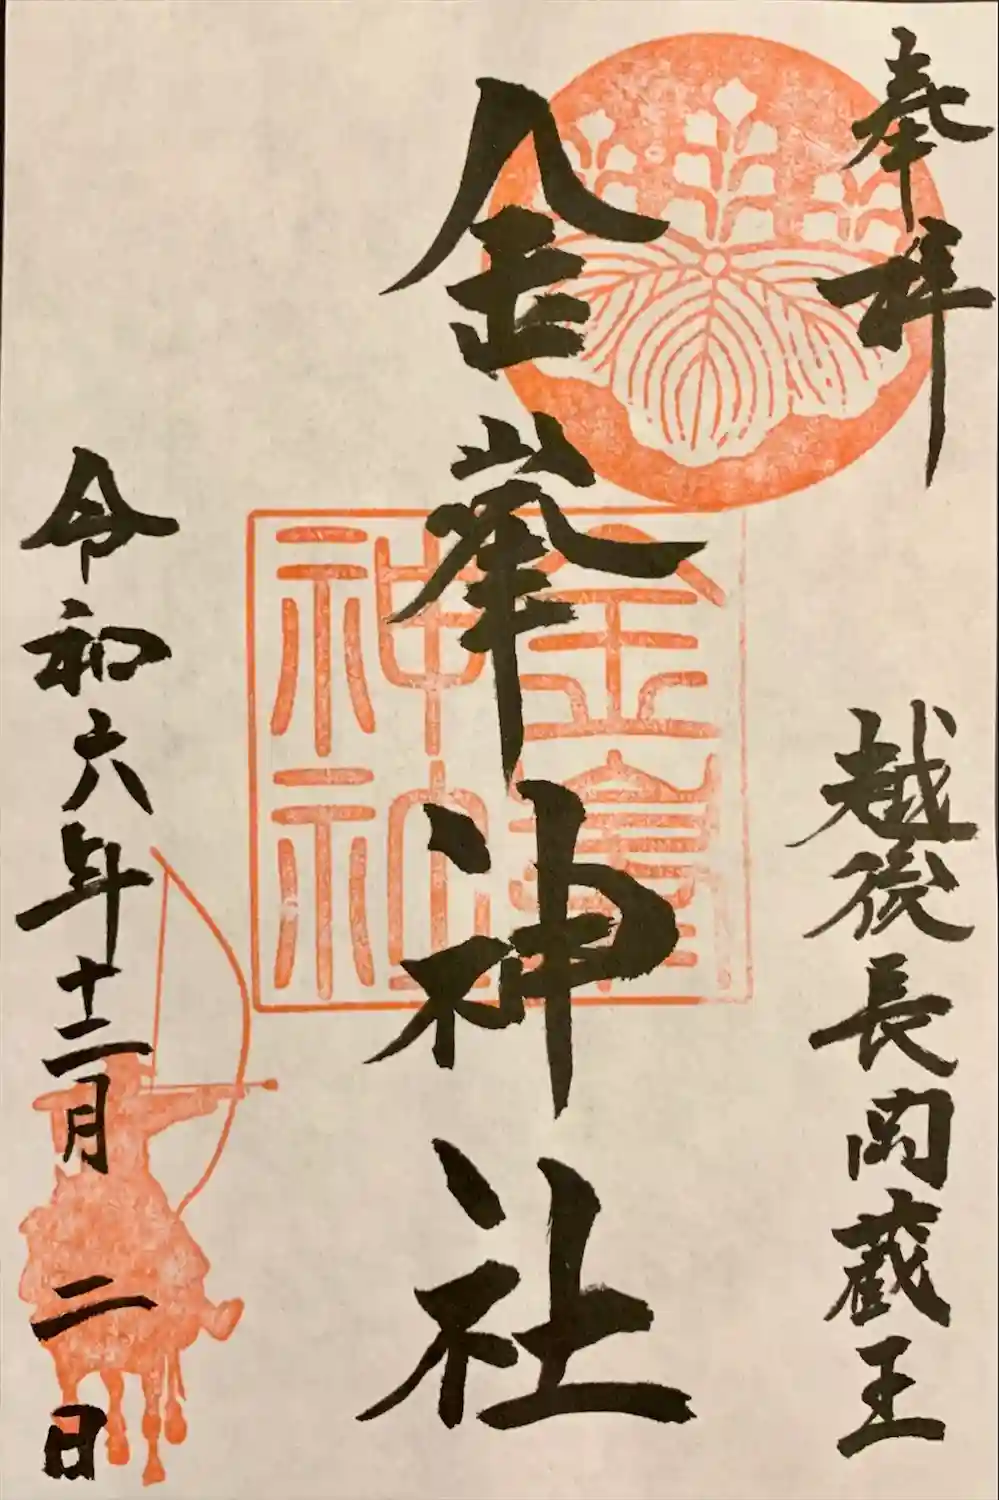 奉拝
越後長岡蔵王
金峯神社
金峯
神社
令和六年十二月二日